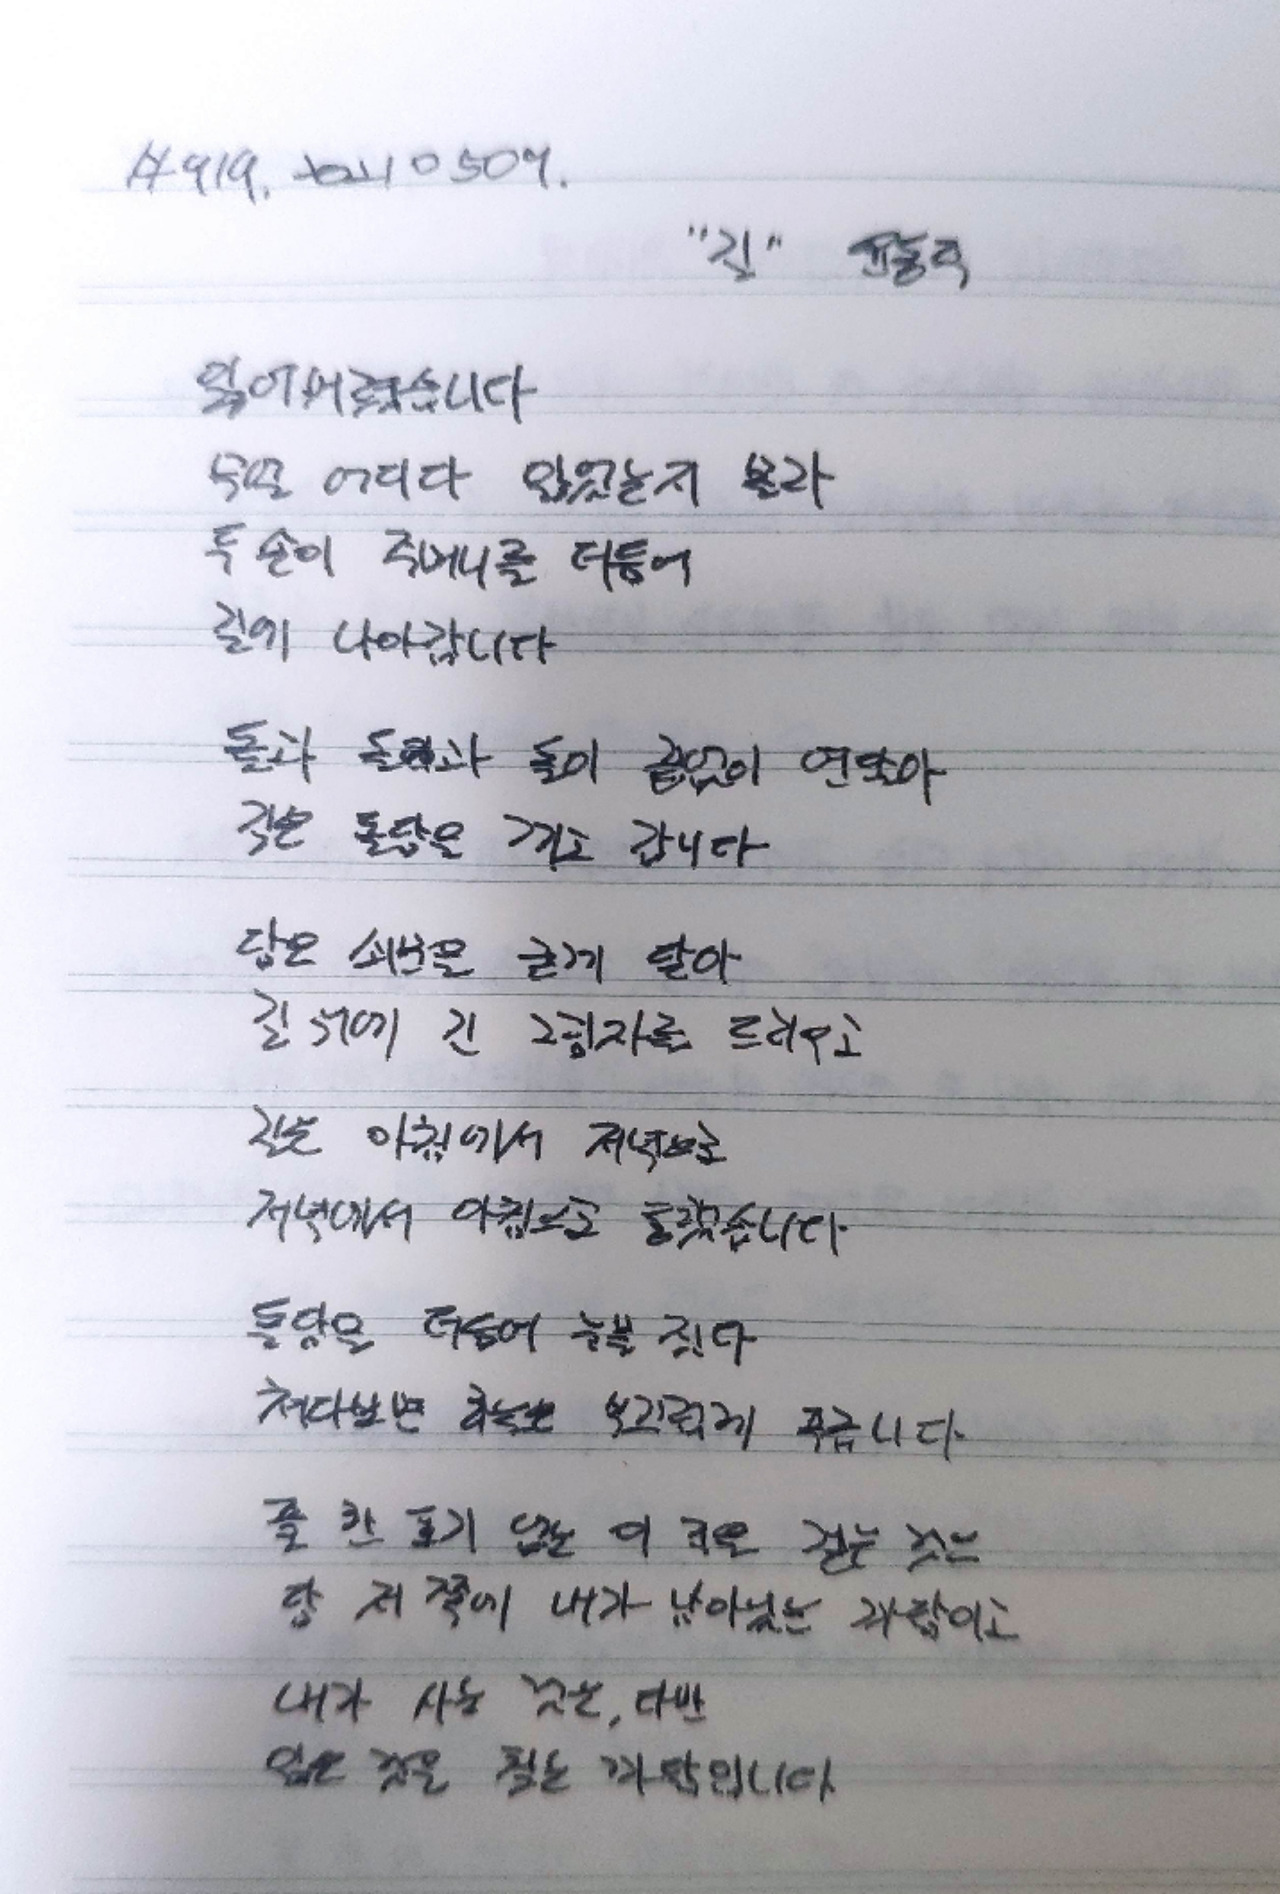 #919. 20210507.
"길" 윤동주
잃어버렸습니다
무얼 어디다 잃었는지 몰라
두 손이 주머니를 더듬어
길에 나아갑니다
돌과 돌과 돌이 끝없이 연달아
길은 돌담을 끼고 갑니다
담은 쇠문을 굳게 닫아
길 위에 긴 그림자를 드리우고
길은 아침에서 저녁으로
저녁에서 아침으로 통했습니다
돌담을 더듬어 눈물 짓다
쳐다보면 하늘은 부끄럽게 푸릅니다
풀 한 포기 없는 이 길을 걷는 것은
담 저 쪽에 내가 남아있는 까닭이고
내가 사는 것은, 다만
잃은 것을 찾는 까닭입니다